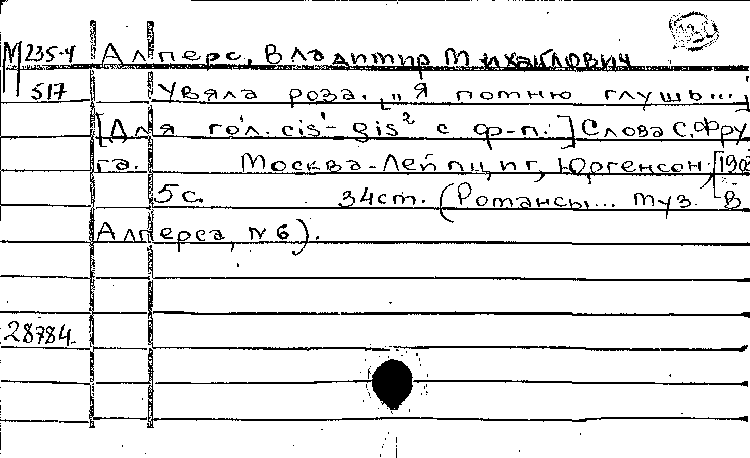 М 235-4 Алперс, Владимир Михайлович
517 Увяла роза. [„Я помню глушь..."]
[Для гол. cis¹-gis² с ф-п.] Слова С. Фру
га. Москва-Лейпциг, Юргенсон [190
5 с. 34 cm. (Романсы... муз. В
Алперса, №6).
28784.